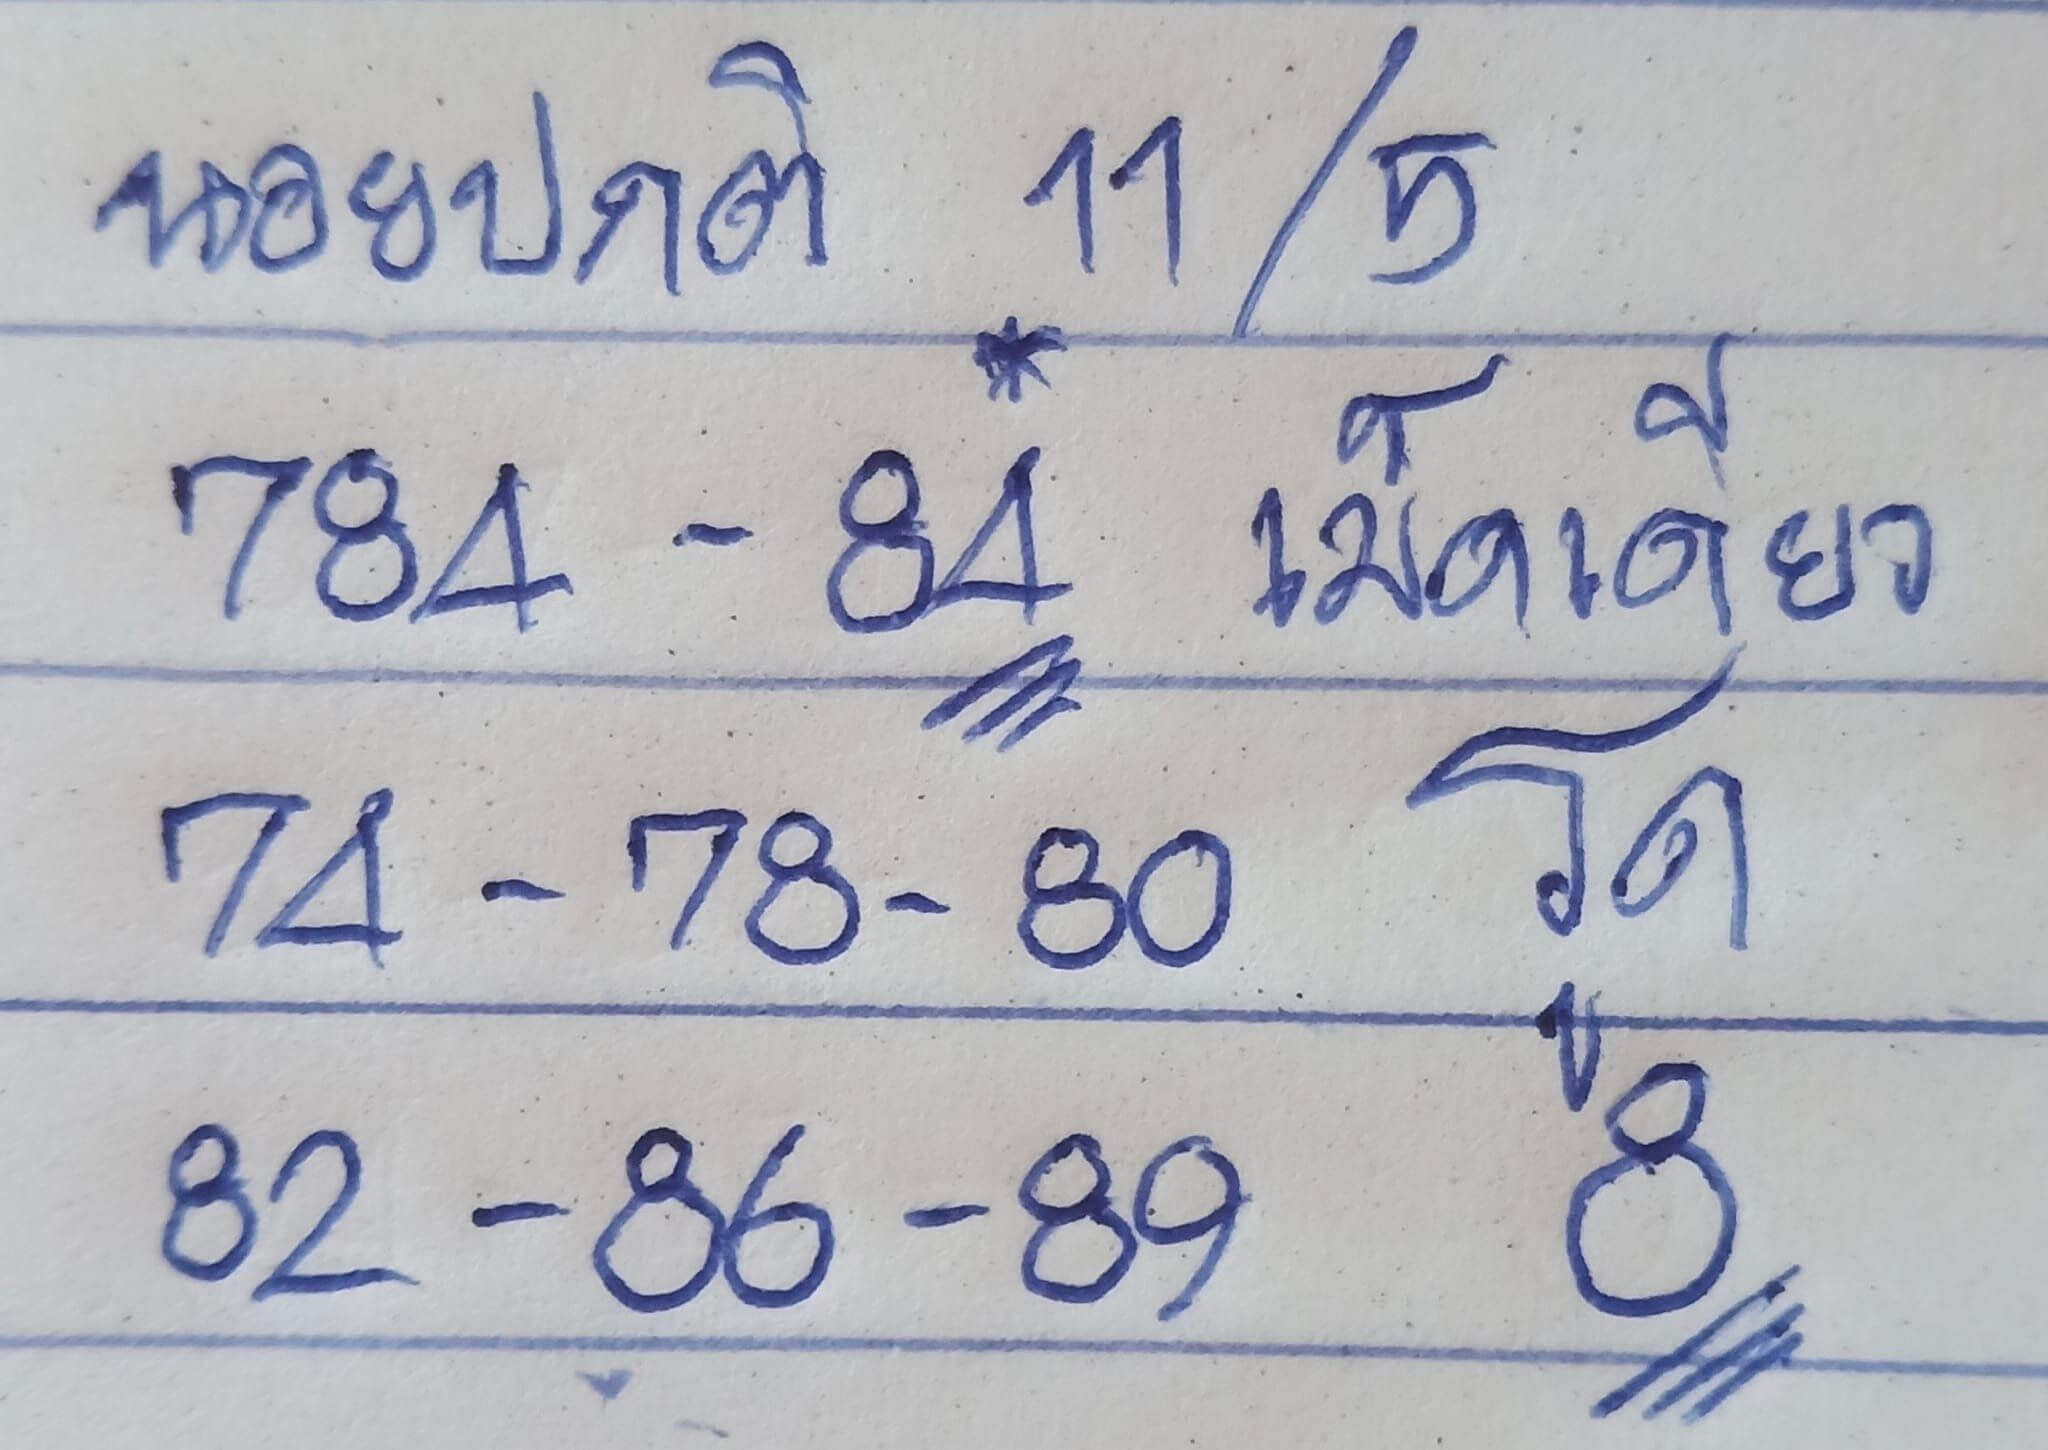 หอยปกติ 11/5
784 - 84* เม็ดเดียว
74 - 78 - 80 รูด
82 - 86 - 89 8